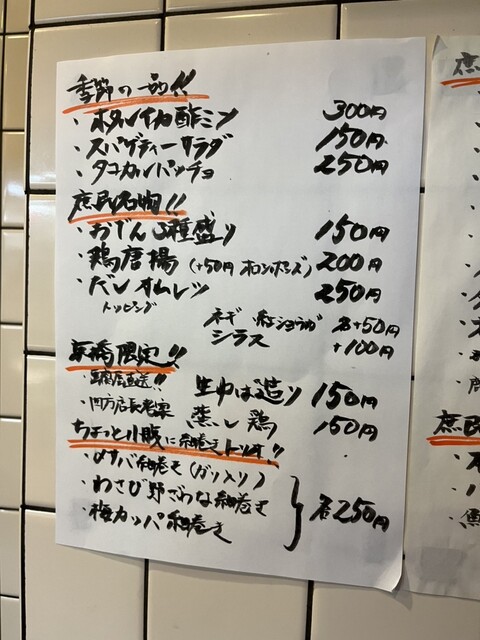 季節の一品!!
・ホタルイカ酢ミソ 300円
・スパゲティーサラダ 150円
・タコカルパッチョ 250円
庶民名物!!
・おでん3種盛り 150円
・鶏唐揚(+50円 ネギポンズ) 200円
・だしオムレツ 250円
トッピング
ネギ 紅ショウガ 各+50円
シラス +100円
京橋限定!!
・豆腐店直送!! 生ゆば造り 150円
・四万店長考案 蒸し鶏 150円
ちょっと小腹に細巻きトリオ!!
・〆サバ細巻き(ガリ入り)
・わさび野ざわな細巻き
・梅カッパ細巻き
各250円
庶
庶民